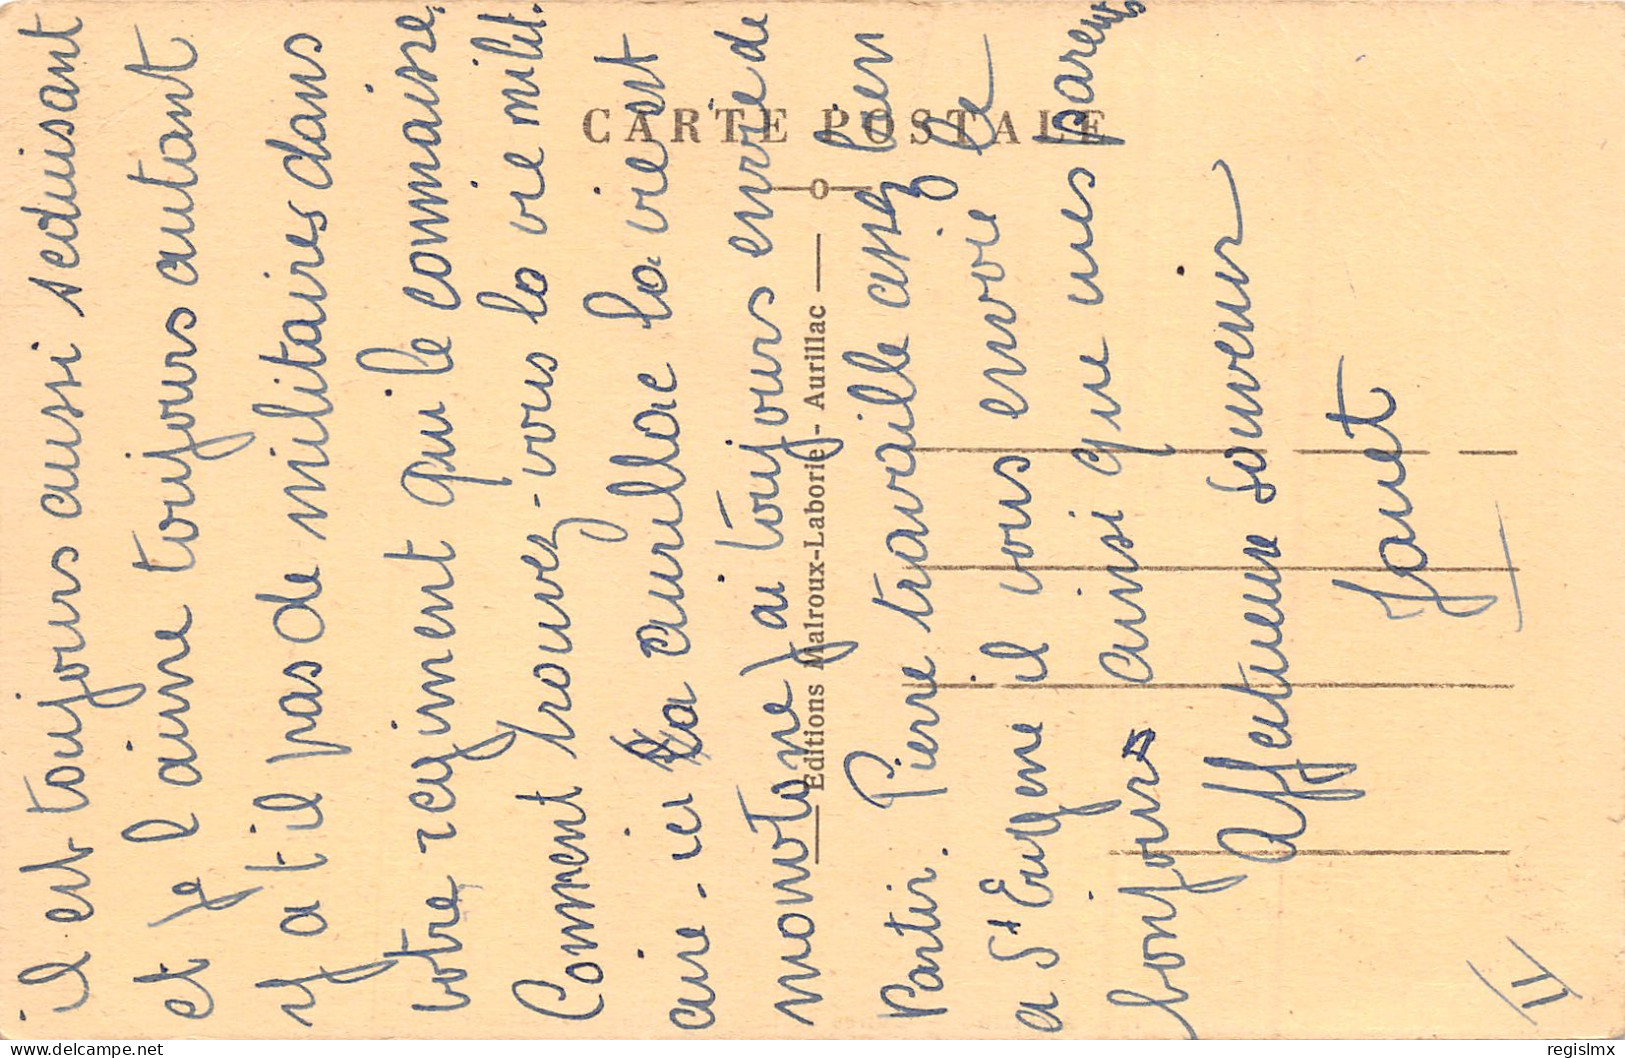 il est toujours aussi seduisant
et je l'aime toujours autant
y a t'il pas de militaires dans
votre regiment qui le connaisse.
Comment trouvez-vous la vie milit.
aire - ici a aurillac la vie est
monotone j'ai toujours envie de
partir. Pierre travaille assez bien
a St Eugene il vous envoie le
bonjours ainsi que mes parents
Affectueux souvenir
Janet
IV
CARTE POSTALE
Editions Malroux-Laborie - Aurillac
delcampe.net
regislmx